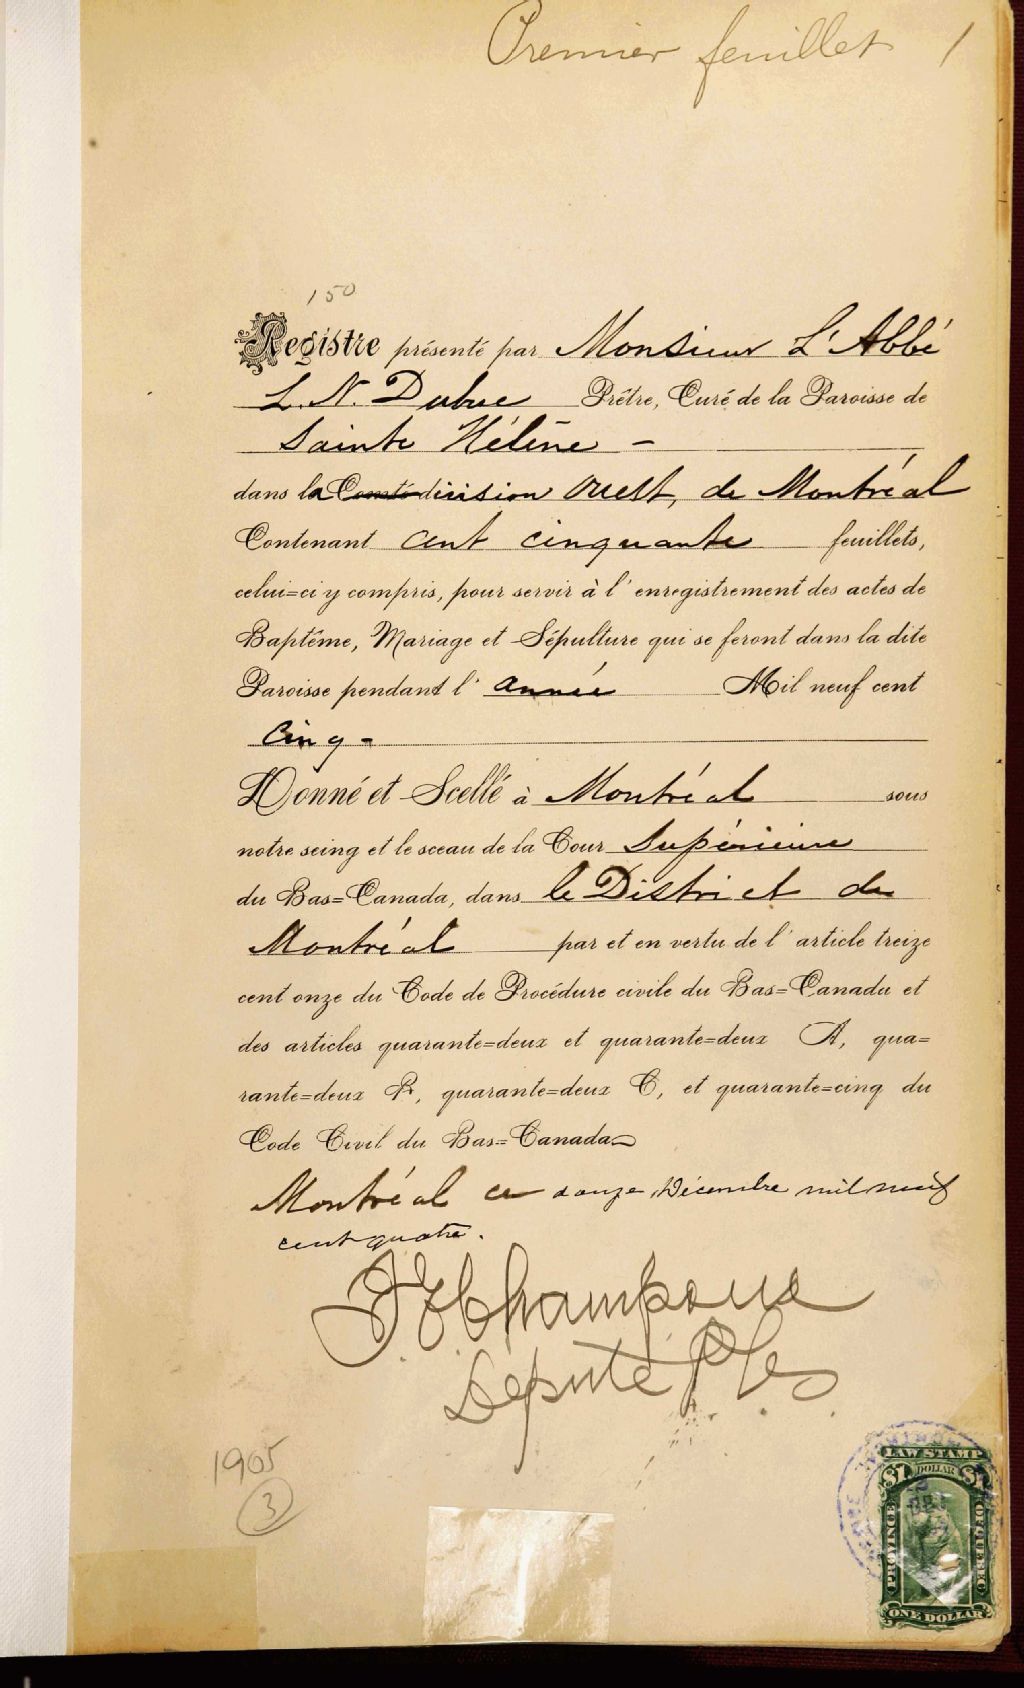 Premier feuillet 1
150
Registre présenté par Monsieur L'Abbé
L. N. Dubuc Prêtre, Curé de la Paroisse de
Sainte Hélène -
dans la Comté division Ouest, de Montréal
Contenant cent cinquante feuillets,
celui=ci y compris, pour servir à l'enregistrement des actes de
Baptême, Mariage et Sépulture qui se feront dans la dite
Paroisse pendant l'année Mil neuf cent
Cinq -
Donné et Scellé à Montréal sous
notre seing et le sceau de la Cour Supérieure
du Bas=Canada, dans le District de
Montréal par et en vertu de l'article treize
cent onze du Code de Procédure civile du Bas=Canada et
des articles quarante=deux et quarante=deux A, qua=
rante=deux B, quarante=deux C, et quarante=cinq du
Code Civil du Bas=Canada
Montréal ce douze Décembre mil neuf
cent quatre.
Champoux
Député
1905
3
LAW STAMP
$1 DOLLAR $1
PROVINCE OF QUEBEC
ONE DOLLAR